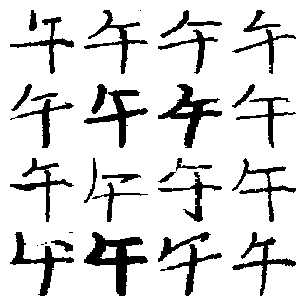 午午午午
午午午午
午午午午
午午午午